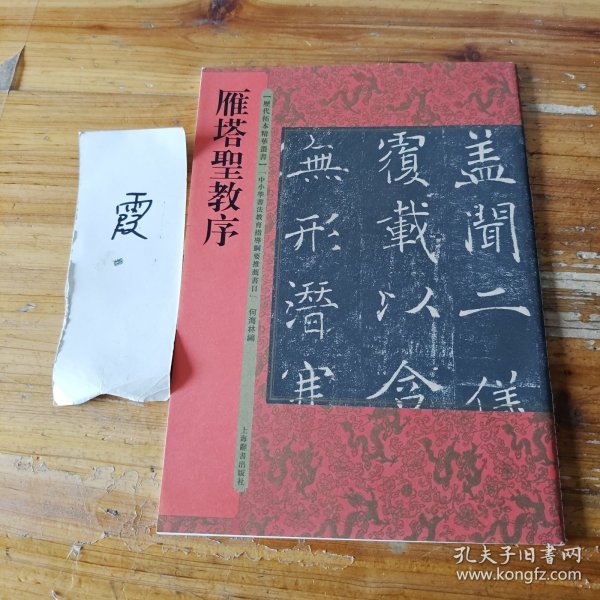 霞
雁塔聖教序
【歷代拓本精華叢書】「中小學書法教育指導綱要推薦書目」
何海林編
上海辭書出版社
蓋聞二儀
覆載以含
無形潛寒
孔夫子旧书网
www.kongfz.com